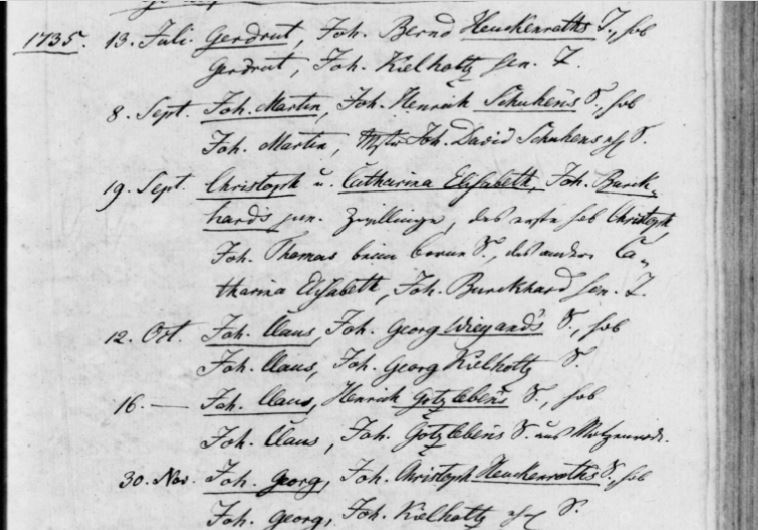 1735. 13. Juli. Gerdrut, Joh. Bernd Heuckenroths T., hob
Gerdrut, Joh. Kielholtz sen. T.
8. Sept. Joh. Martin, Joh. Henrich Schuken's S., hob
Joh. Martin, Joh. David Schukens S.
19. Sept. Christoph u. Catharina Elisabeth, Joh. Burck-
hard's jun. Zwillinge, das erste hob Christoph
Joh. Thomas beim Born S., das andre Ca-
tharina Elisabeth, Joh. Burckhard sen. T.
12. Oct. Joh. Claus, Joh. Georg Wiegand's S., hob
Joh. Claus, Joh. Georg Kielholtz S.
16. — Joh. Claus, Henrich Götzleben's S., hob
Joh. Claus, Joh. Götzleben's S. aus
30. Nov. Joh. Georg, Joh. Christoph Heuckenroths S. hob
Joh. Georg, Joh. Kielholtz S.